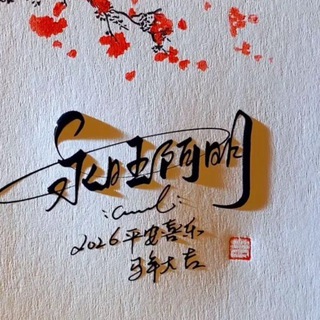 永旺阿明
2026平安喜乐
马年大吉